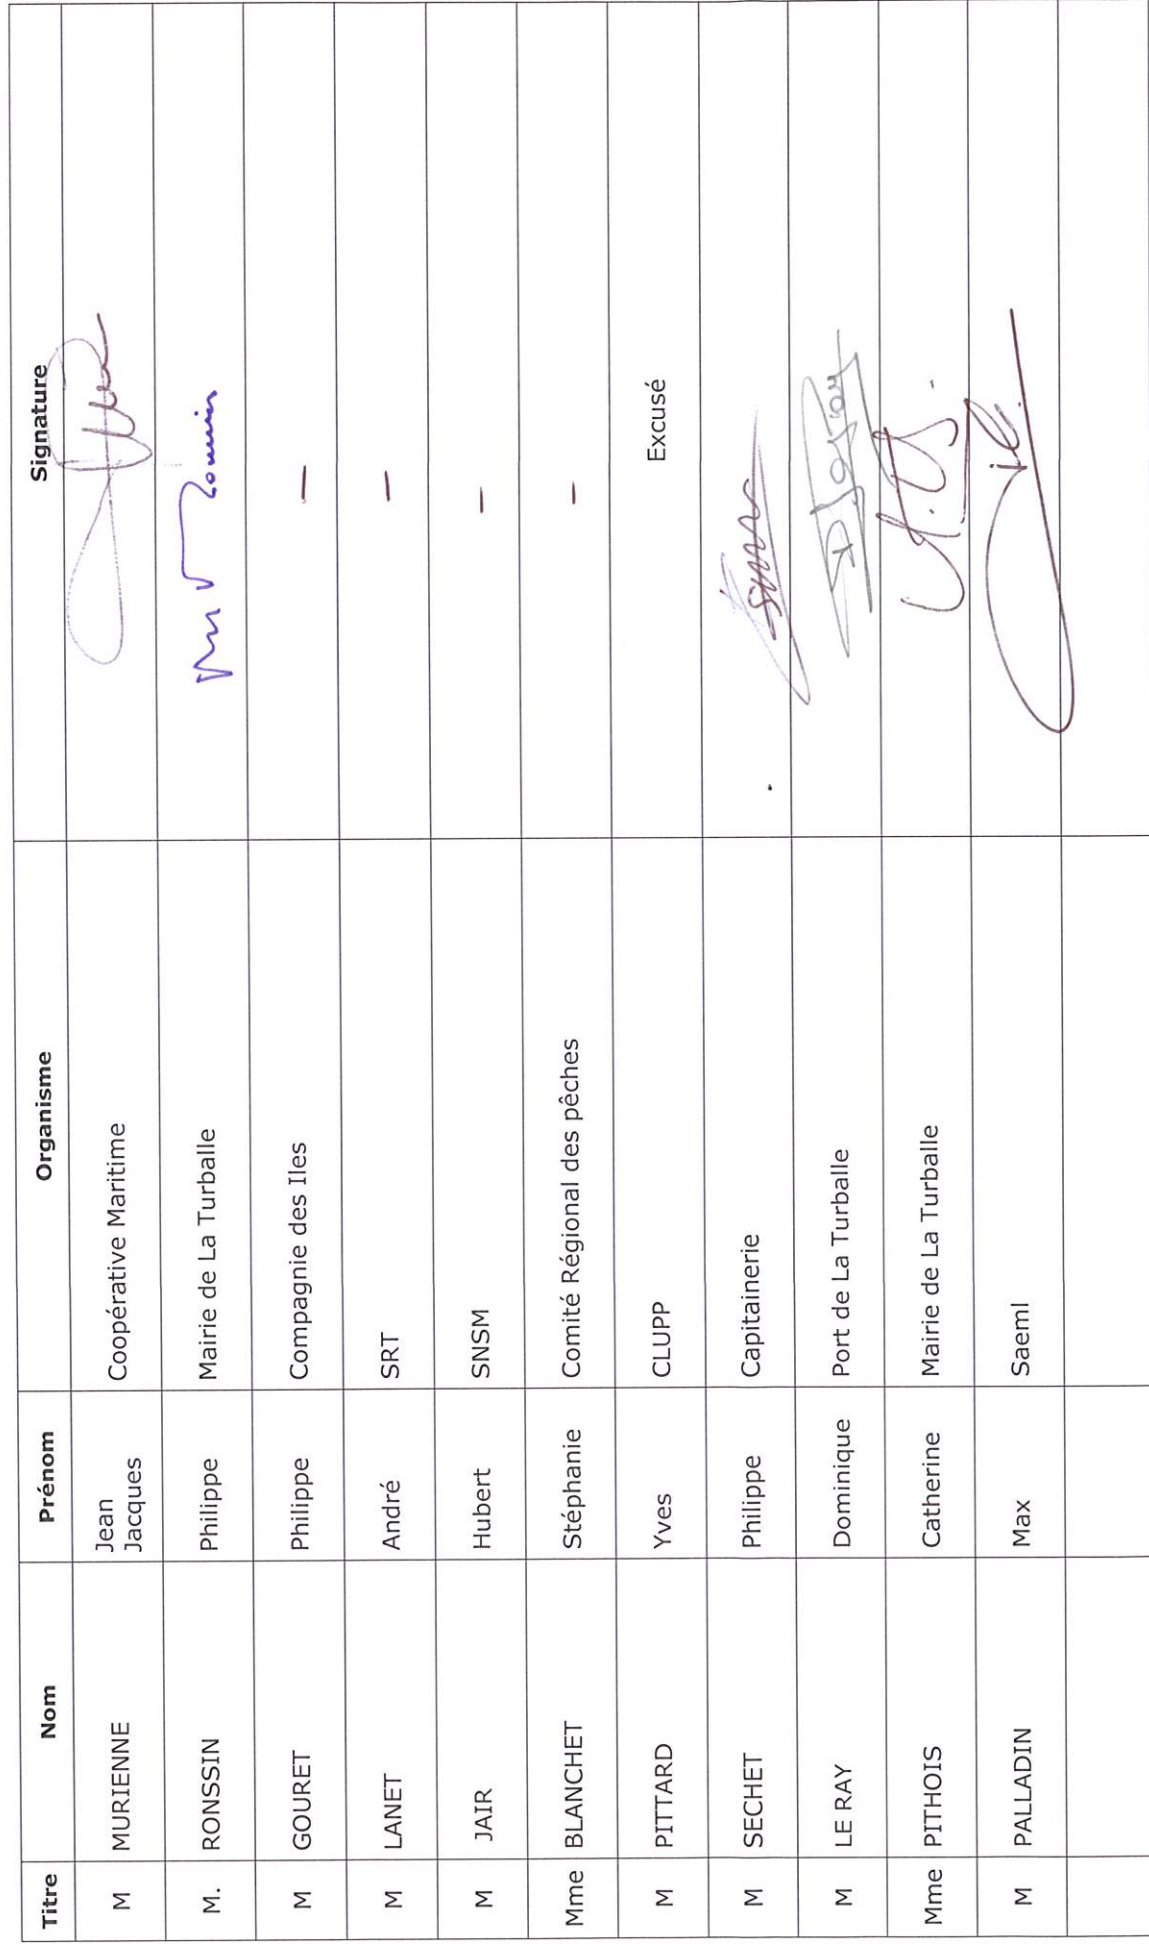 Titre Nom Prénom Organisme Signature
M MURIENNE Jean Jacques Coopérative Maritime
M. RONSSIN Philippe Mairie de La Turballe
M GOURET Philippe Compagnie des Iles –
M LANET André SRT –
M JAIR Hubert SNSM –
Mme BLANCHET Stéphanie Comité Régional des pêches –
M PITTARD Yves CLUPP Excusé
M SECHET Philippe Capitainerie
M LE RAY Dominique Port de La Turballe
Mme PITHOIS Catherine Mairie de La Turballe
M PALLADIN Max Saeml